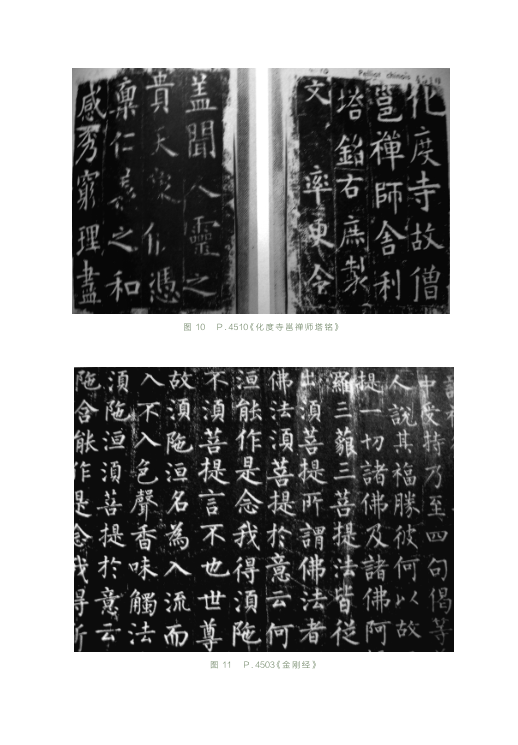 Pelliot chinois 4510
化度寺故僧
邕禪師舍利
塔銘右庶製
文 率更令
盖聞人靈之
貴天象攸憑
稟仁義之和
感秀窮理盡
图 10 P.4510《化度寺邕禅师塔铭》
中受持乃至四句偈等
人說其福勝彼何以故
提一切諸佛及諸佛阿
羅三藐三菩提法皆從
出湏菩提所謂佛法者
佛法湏菩提於意云何
洹能作是念我得湏陁
不湏菩提言不也世尊
故湏陁洹名為入流而
入不入色聲香味觸法
湏陁洹湏菩提於意云
陁含能作是念我得斯
图 11 P.4503《金刚经》